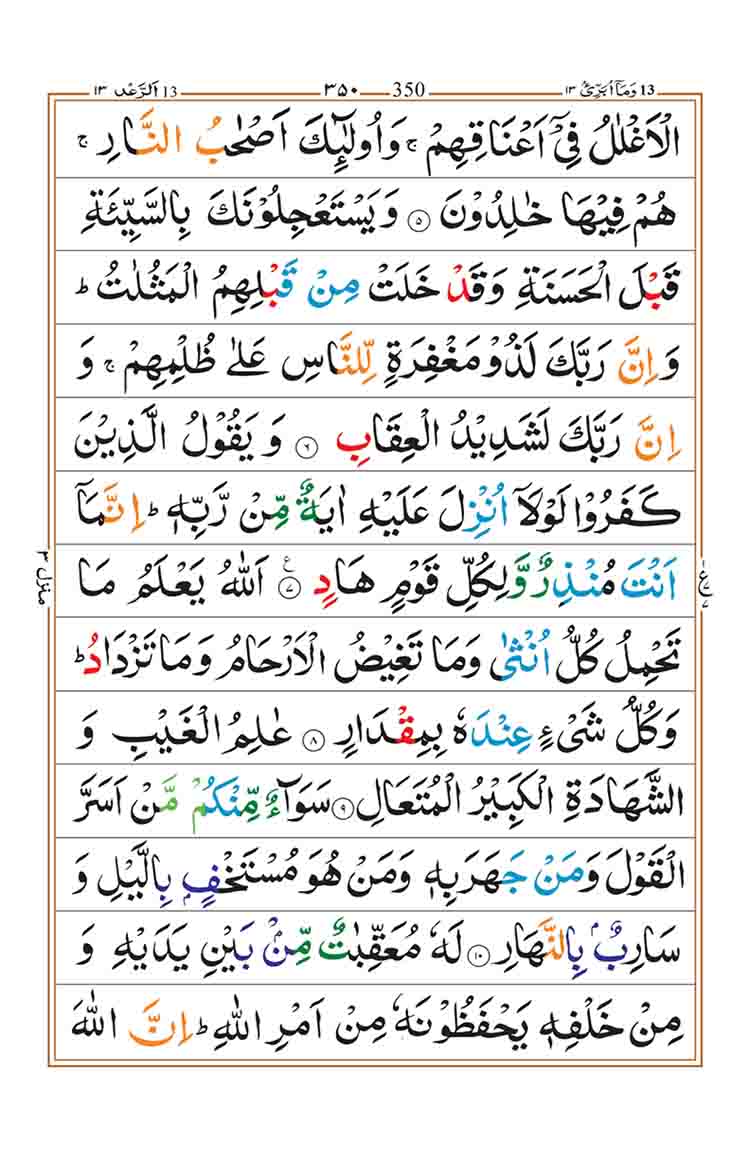 13 وَمَآ اُبَرِّئُ ١٣ 350 ٣٥٠ 13 اَلرَّعْد ١٣
الْاَغْلٰلُ فِيْٓ اَعْنَاقِهِمْ ۚ وَاُولٰٓئِكَ اَصْحٰبُ النَّارِ ۚ
هُمْ فِيْهَا خٰلِدُوْنَ ۝٥ وَيَسْتَعْجِلُوْنَكَ بِالسَّيِّئَةِ
قَبْلَ الْحَسَنَةِ وَقَدْ خَلَتْ مِنْ قَبْلِهِمُ الْمَثُلٰتُ ؕ
وَ اِنَّ رَبَّكَ لَذُوْ مَغْفِرَةٍ لِّلنَّاسِ عَلٰى ظُلْمِهِمْ ۚ وَ
اِنَّ رَبَّكَ لَشَدِيْدُ الْعِقَابِ ۝٦ وَ يَقُوْلُ الَّذِيْنَ
كَفَرُوْا لَوْلَآ اُنْزِلَ عَلَيْهِ اٰيَةٌ مِّنْ رَّبِّهٖ ؕ اِنَّمَآ
اَنْتَ مُنْذِرٌ وَّلِكُلِّ قَوْمٍ هَادٍ ۝٧ ع اَللّٰهُ يَعْلَمُ مَا
تَحْمِلُ كُلُّ اُنْثٰى وَمَا تَغِيْضُ الْاَرْحَامُ وَمَا تَزْدَادُ ؕ
وَكُلُّ شَيْءٍ عِنْدَهٗ بِمِقْدَارٍ ۝٨ عٰلِمُ الْغَيْبِ وَ
الشَّهَادَةِ الْكَبِيْرُ الْمُتَعَالِ ۝٩ سَوَآءٌ مِّنْكُمْ مَّنْ اَسَرَّ
الْقَوْلَ وَمَنْ جَهَرَ بِهٖ وَمَنْ هُوَ مُسْتَخْفٍ بِالَّيْلِ وَ
سَارِبٌ بِالنَّهَارِ ۝١٠ لَهٗ مُعَقِّبٰتٌ مِّنْ بَيْنِ يَدَيْهِ وَ
مِنْ خَلْفِهٖ يَحْفَظُوْنَهٗ مِنْ اَمْرِ اللّٰهِ ؕ اِنَّ اللّٰهَ
منزل ٣